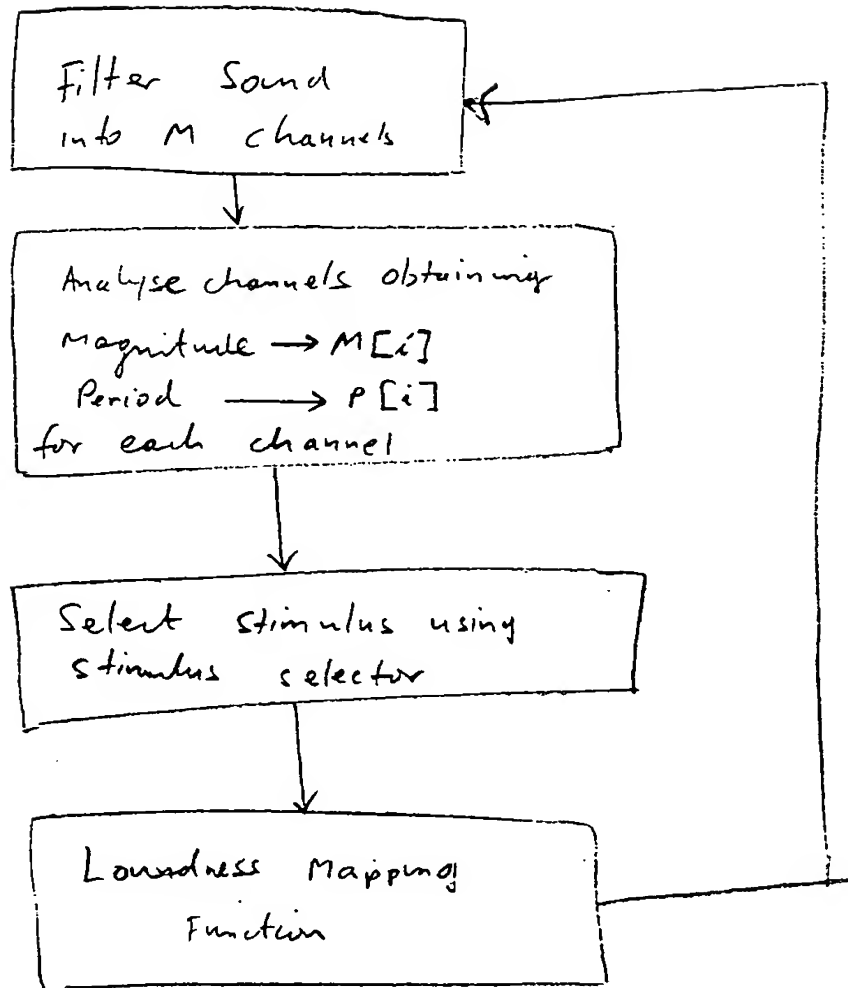 Filter Sound
into M channels
Analyse channels obtaining
Magnitude → M[i]
Period → P[i]
for each channel
Select stimulus using
stimulus selector
Loundness Mapping
Function